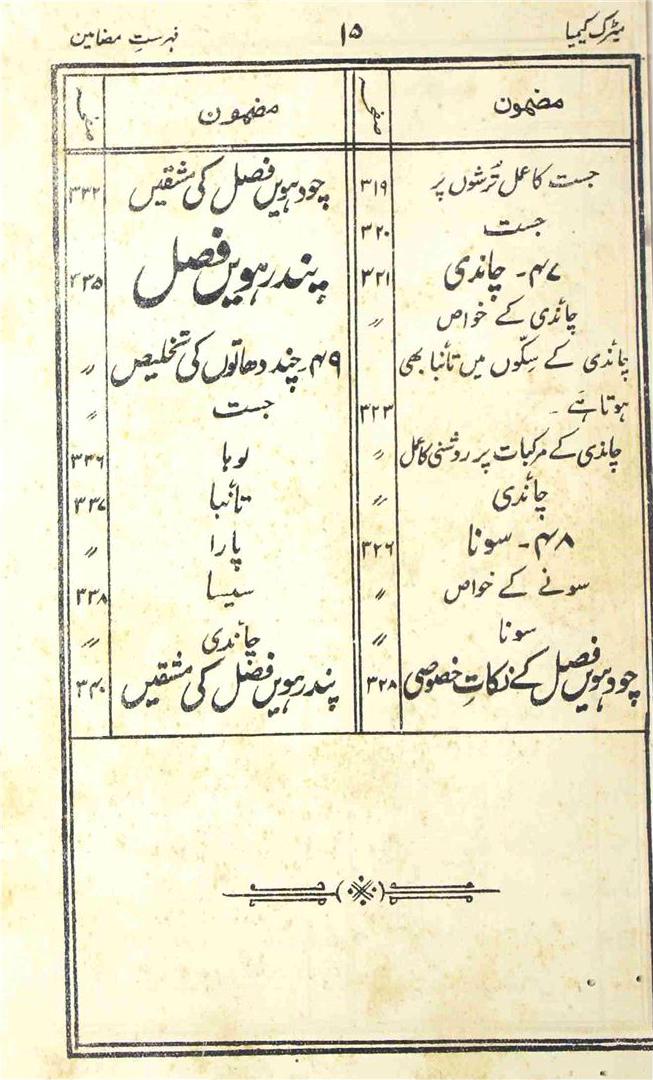 میٹرک کیمیا ۱۵ فہرستِ مضامین
مضمون صفحہ
جست کا عمل تُرشوں پر ۳۱۹
جست ۳۲۰
۴۷ ۔ چاندی ۳۲۱
چاندی کے خواص 〃
چاندی کے سِکّوں میں تانبا بھی
ہوتا ہَے ۔ ۳۲۳
چاندی کے مرکبات پر روشنی کا عمل 〃
چاندی 〃
۴۸ ۔ سونا ۳۲۶
سونے کے خواص 〃
سونا 〃
چودہویں فصل کے نکاتِ خصوصی ۳۲۸
مضمون صفحہ
چودہویں فصل کی مشقیں ۳۳۲
پندرہویں فصل ۴۳۵
۴۹ ۔ چند دھاتوں کی تخلیص 〃
جست 〃
لوہا ۳۳۶
تانبا ۳۳۷
پارا 〃
سیسا ۳۳۸
چاندی 〃
پندرہویں فصل کی مشقیں ۳۴۰